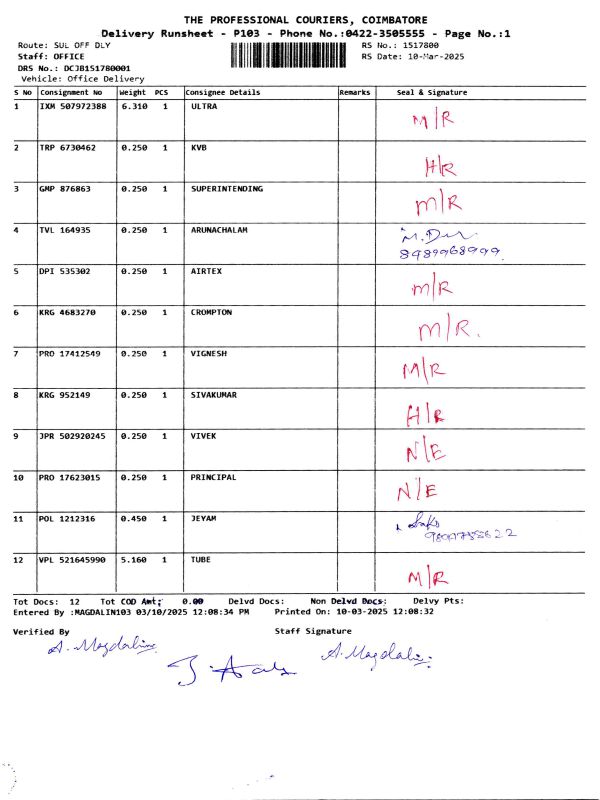 THE PROFESSIONAL COURIERS, COIMBATORE
Delivery Runsheet - P103 - Phone No.:0422-3505555 - Page No.:1
Route: SUL OFF DLY RS No.: 1517800
Staff: OFFICE RS Date: 10-Mar-2025
DRS No.: DCJB1S1780001
Vehicle: Office Delivery
S No Consignment No Weight PCS Consignee Details Remarks Seal & Signature
1 IXM 507972388 6.310 1 ULTRA M/R
2 TRP 6730462 0.250 1 KVB H/R
3 GMP 876863 0.250 1 SUPERINTENDING M/R
4 TVL 164935 0.250 1 ARUNACHALAM
8989968999
5 DPI 535302 0.250 1 AIRTEX M/R
6 KRG 4683270 0.250 1 CROMPTON M/R.
7 PRO 17412549 0.250 1 VIGNESH M/R
8 KRG 952149 0.250 1 SIVAKUMAR H/R
9 JPR 502920245 0.250 1 VIVEK N/E
10 PRO 17623015 0.250 1 PRINCIPAL N/E
11 POL 1212316 0.450 1 JEYAM
12 VPL 521645990 5.160 1 TUBE M/R
Tot Docs: 12 Tot COD Amt: 0.00 Delvd Docs: Non Delvd Docs: Delvy Pts:
Entered By :MAGDALIN103 03/10/2025 12:08:34 PM Printed On: 10-03-2025 12:08:32
Verified By Staff Signature
A. Magdaline A. Magdalin